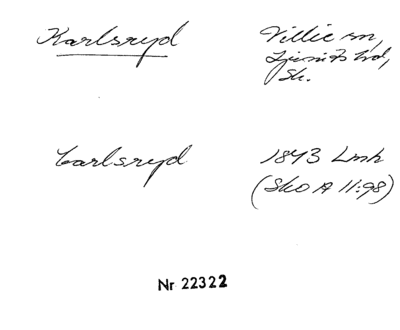 Karlsryd
Villie sn,
Ljunits hd,
Sk.
Carlsryd
1843 Lmk
(Sko A 11:98)
Nr 22322